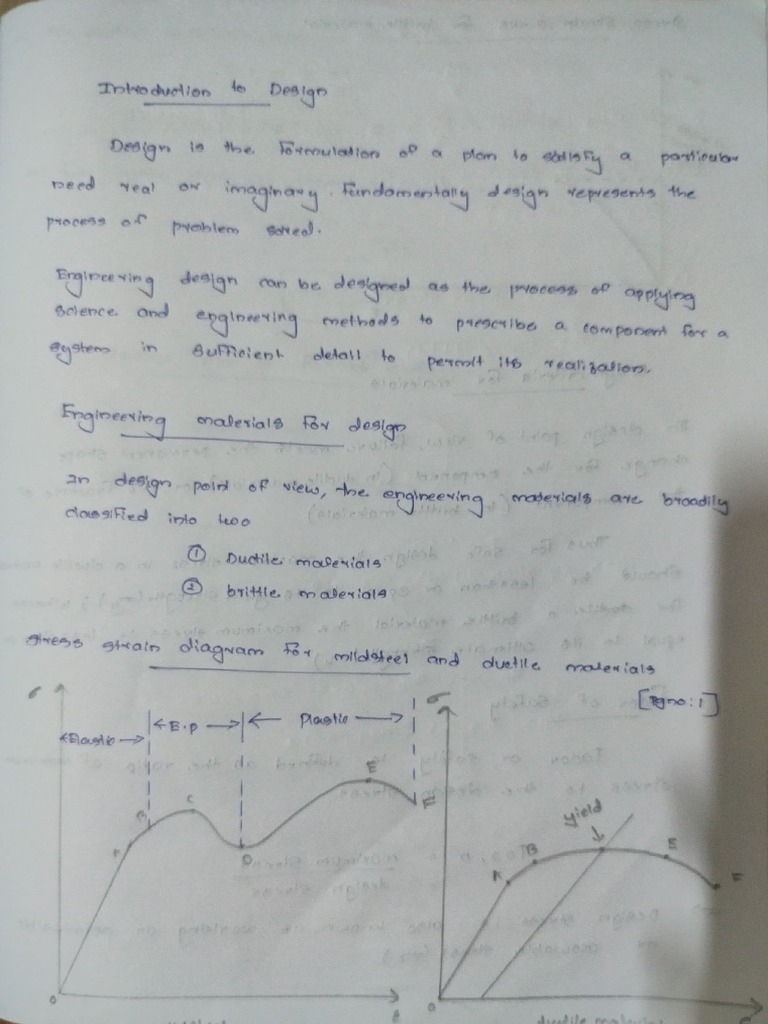 Introduction to Design
Design is the formulation of a plan to satisfy a particular
need real or imaginary. Fundamentally design represents the
process of problem
Engineering design can be designed as the process of applying
science and engineering methods to prescribe a component for a
system in sufficient detail to permit its realization.
Engineering materials for design
In design point of view, the engineering materials are broadily
classified into two
① Ductile materials
② brittle materials
stress strain diagram for mildsteel and ductile materials
[Pg no: 1]
σ
Elastic
E.p
Plastic
A
B
C
D
E
F
O
σ
yield
A
B
E
F
O